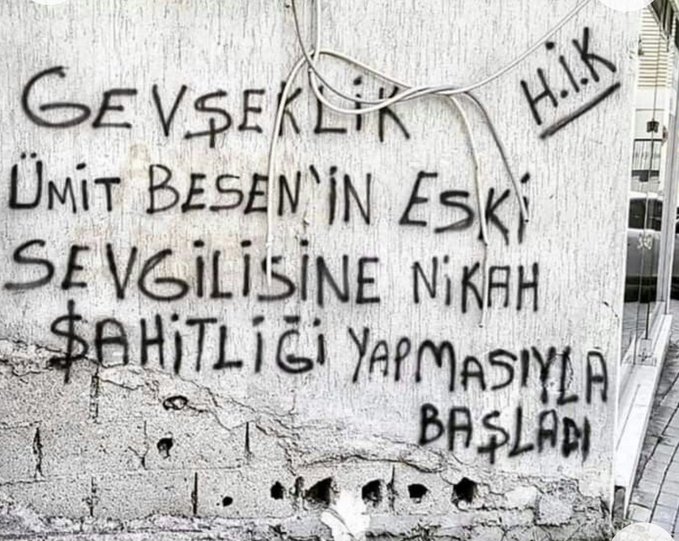 GEVŞEKLİK
H.İ.K
ÜMİT BESEN'İN ESKİ
SEVGİLİSİNE NİKAH
ŞAHİTLİĞİ YAPMASIYLA
BAŞLADI